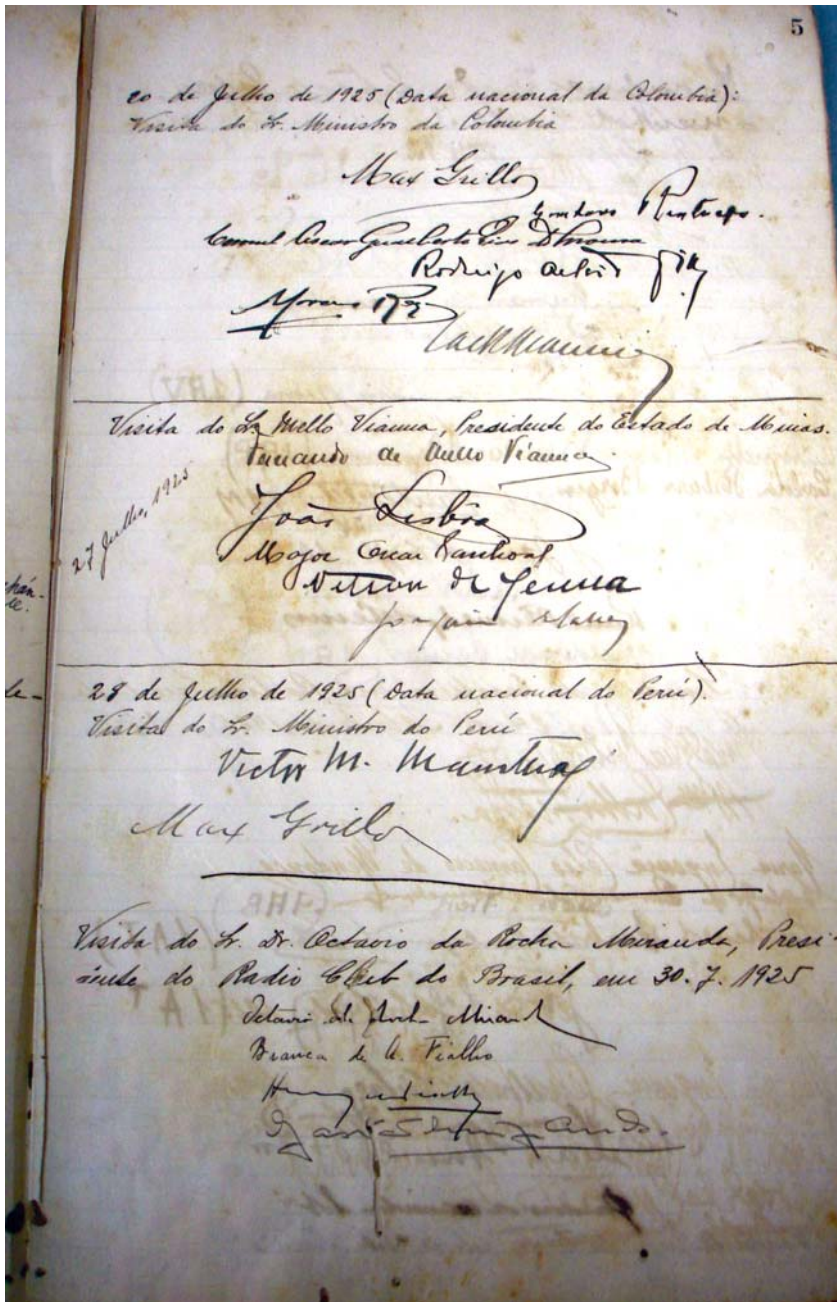 5
20 de Julho de 1925 (Data nacional da Colombia):
Visita do Sr. Ministro da Colombia
Max Grillo
Gustavo
Coronel Oscar Gualberto
Rodrigo
Moreno
Visita do Sr. Mello Vianna, Presidente do Estado de Minas.
Fernando de Mello Vianna
27 Julho, 1925
João Lisbôa
Major Oscar
Nelson de Senna
Joaquim
28 de Julho de 1925 (Data nacional do Perú).
Visita do Sr. Ministro do Perú
Victor M. Maurtua
Max Grillo
Visita do Sr. Dr. Octavio da Rocha Miranda, Presi-
dente do Radio Club do Brasil, em 30. 7. 1925
Octavio da Rocha Miranda
Branca de A. Fialho